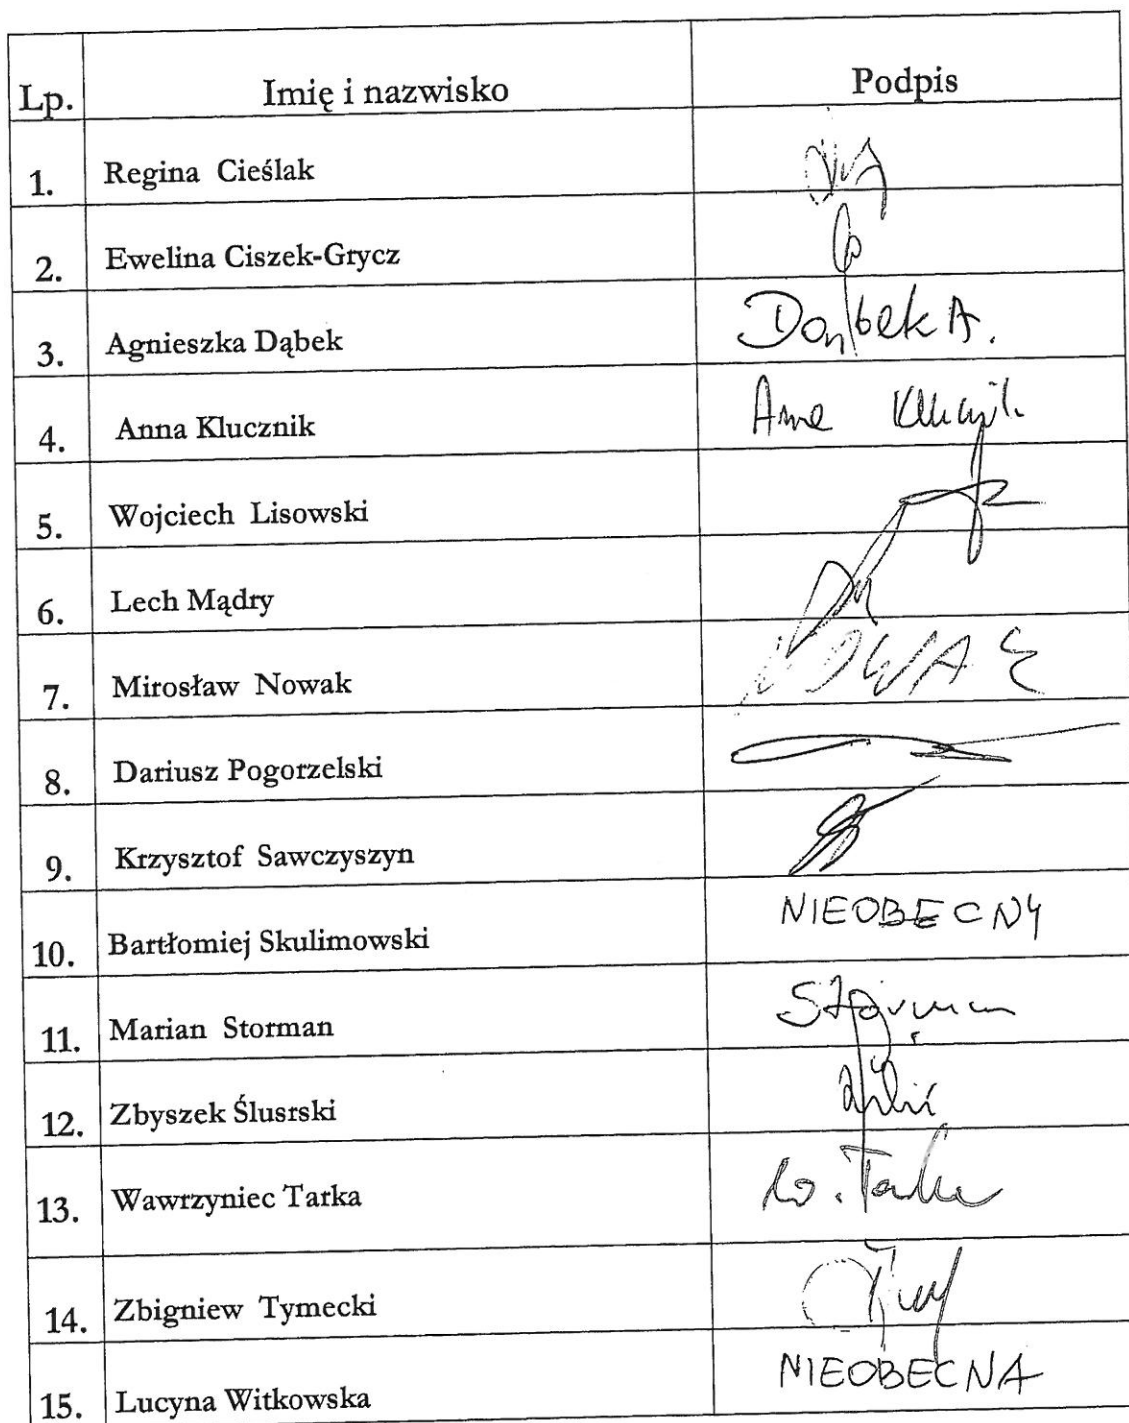 Lp. Imię i nazwisko Podpis
1. Regina Cieślak
2. Ewelina Ciszek-Grycz
3. Agnieszka Dąbek Dąbek A.
4. Anna Klucznik Anna
5. Wojciech Lisowski
6. Lech Mądry
7. Mirosław Nowak NOWAK
8. Dariusz Pogorzelski
9. Krzysztof Sawczyszyn
10. Bartłomiej Skulimowski NIEOBECNY
11. Marian Storman Storman
12. Zbyszek Ślusrski
13. Wawrzyniec Tarka W. Tarka
14. Zbigniew Tymecki
15. Lucyna Witkowska NIEOBECNA